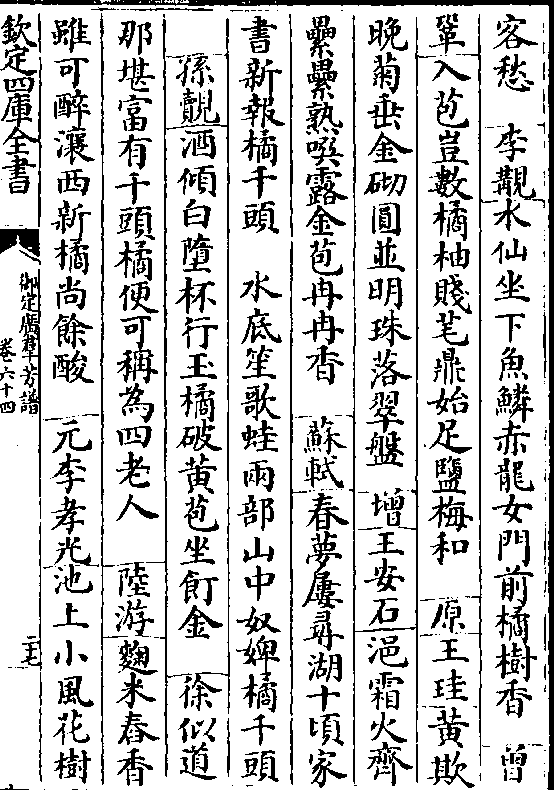 客愁　李覯水仙坐下魚鱗赤龍女門前橘樹香　曾
鞏入苞豈數橘柚賤芼鼎始足鹽梅和　原王珪黃欺
晚菊垂金砌圓並明珠落翠盤　增王安石浥霜火齊
纍纍熟噀露金苞冉冉香　蘇軾春夢屢尋湖十頃家
書新報橘千頭　水底笙歌蛙兩部山中奴婢橘千頭
孫覿洒傾白墮杯行玉橘破黃苞坐飣金　徐似道
那堪富有千頭橘便可稱為四老人　陸游麴米舂香
雖可醉瀼西新橘尚餘酸　元李孝光池上小風花樹
欽定四庫全書
御定廣羣芳譜
卷六十四
二七